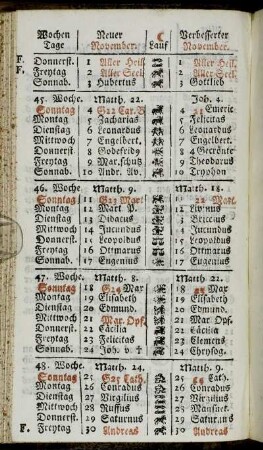 Wochen Neuer Verbesserter
Tage November. Lauf November.
F. Donnerst. 1 Aller Heil. 1 Aller Heil.
F. Freytag 2 Aller Seel. 2 Aller Seel.
Sonnab. 3 Hubertus 3 Gottlieb
45. Woche. Matth. 22. Joh. 4.
Sonntag 4 G22 Car. B 4 Emeric
Montag 5 Zacharias 5 Felicitas
Dienstag 6 Leonardus 6 Leonardus
Mittwoch 7 Engelbert. 7 Engelbert.
Donnerst. 8 Godefridy 8 Gekrönte
Freytag 9 Mar. schutz 9 Theodorus
Sonnab. 10 Andr. Av. 10 Tryphon
46. Woche. Matth. 9. Matth. 18.
Sonntag 11 G23 Mart 11 Mart.
Montag 12 Mart. P. 12
Dienstag 13 Didacus 13 Briccius
Mittwoch 14 Jucundus 14 Jucundus
Donnerst. 15 Leopoldus 15 Leopoldus
Freytag 16 Ottmarus 16 Ottmarus
Sonnab. 17 Eugenius 17 Eugenius
47. Woche. Matth. 8. Matth. 22.
Sonntag 18 G24 Mar 18 Mar
Montag 19 Elisabeth 19 Elisabeth
Dienstag 20 Edmund. 20 Edmund.
Mittwoch 21 Mar. Opf. 21 Mar. Opf.
Donnerst. 22 Cäcilia 22 Cäcilia
Freytag 23 Felicitas 23 Clemens
Sonnab. 24 Joh. v † 24 Chrysog.
48. Woche. Matth. 24. Matth. 9.
Sonntag 25 G25 Cath. 25 Cath.
Montag 26 Conradus 26 Conradus
Dienstag 27 Virgilius 27 Virgilius
Mittwoch 28 Ruffus 28
Donnerst. 29 Saturnus 29 Saturnus
F. Freytag 30 Andreas 30 Andreas